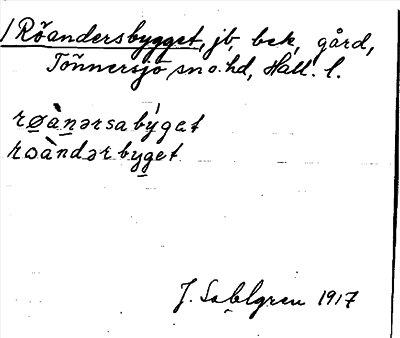 / Röandersbygget, jb, bek, gård,
Tönnersjö sn o. hd, Hall. l.
røànərsabýgət
roàndərbyget
J. Sahlgren 1917